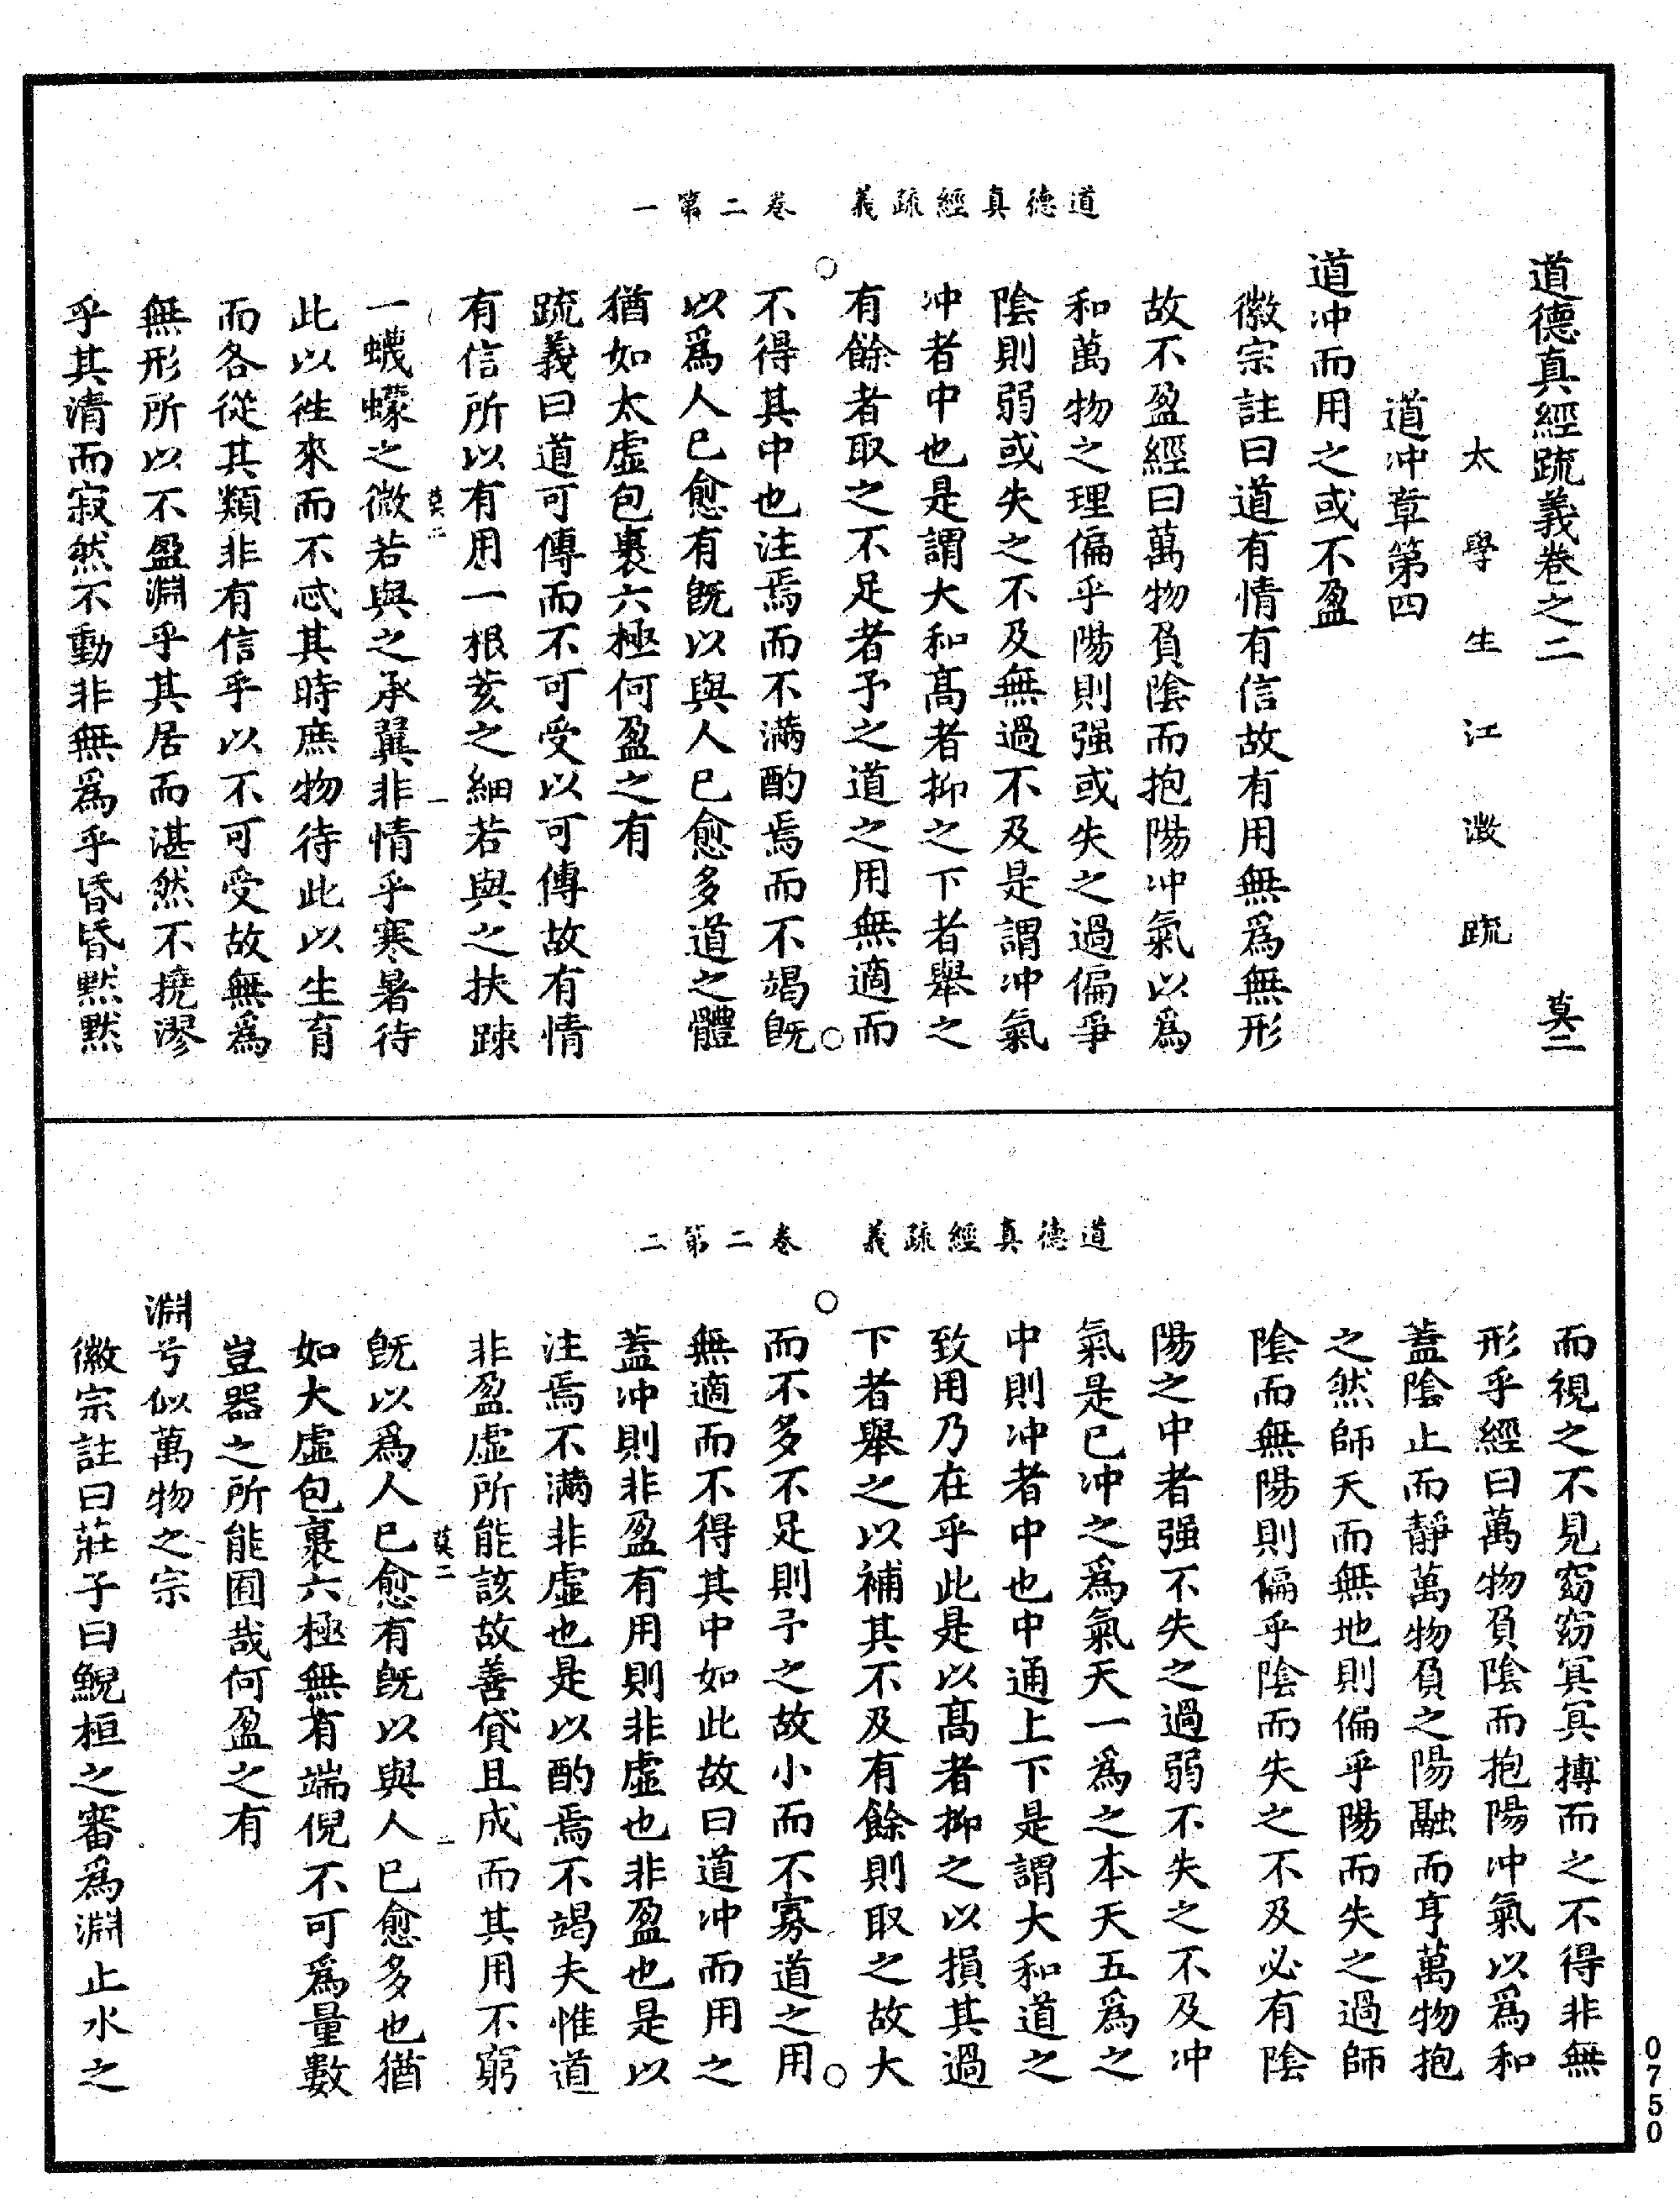 道德真經疏義　卷二第一
道德真經疏義卷之二　莫二
太學生江澂疏
道冲章第四
道冲而用之或不盈
徽宗註曰道有情有信故有用無爲無形
故不盈經曰萬物負陰而抱陽冲氣以爲
和萬物之理偏乎陽則强或失之過偏乎
陰則弱或失之不及無過不及是謂冲氣
冲者中也是謂大和高者抑之下者舉之
有餘者取之不足者予之道之用無適而
不得其中也注焉而不滿酌焉而不竭旣
以爲人已愈有旣以與人已愈多道之體
猶如太虛包裹六極何盈之有
疏義曰道可傳而不可受以可傳故有情
有信所以有用一根荄之細若與之扶踈
莫二　一
一蠛蠓之微若與之承翼非情乎寒暑待
此以徃來而不忒其時庶物待此以生育
而各從其類非有信乎以不可受故無爲
無形所以不盈淵乎其居而湛然不撓漻
乎其清而寂然不動非無爲乎昏昏默默
道德真經疏義　卷二第二
而視之不見窈窈冥冥搏而之不得非無
形乎經曰萬物負陰而抱陽冲氣以爲和
蓋陰止而靜萬物負之陽融而亨萬物抱
之然師天而無地則偏乎陽而失之過師
陰而無陽則偏乎陰而失之不及必有陰
陽之中者强不失之過弱不失之不及冲
氣是已冲之爲氣天一爲之本天五爲之
中則冲者中也中通上下是謂大和道之
致用乃在乎此是以高者抑之以損其過
下者舉之以補其不及有餘則取之故大
而不多不足則予之故小而不寡道之用
無適而不得其中如此故曰道冲而用之
蓋冲則非盈有用則非虛也非盈也是以
注焉不滿非虛也是以酌焉不竭夫惟道
非盈虛所能該故善貸且成而其用不窮
莫二　二
旣以爲人已愈有旣以與人已愈多也猶
如大虛包裹六極無有端倪不可爲量數
豈器之所能囿哉何盈之有
淵兮似萬物之宗
徽宗註曰莊子曰鯢桓之審爲淵止水之
0750